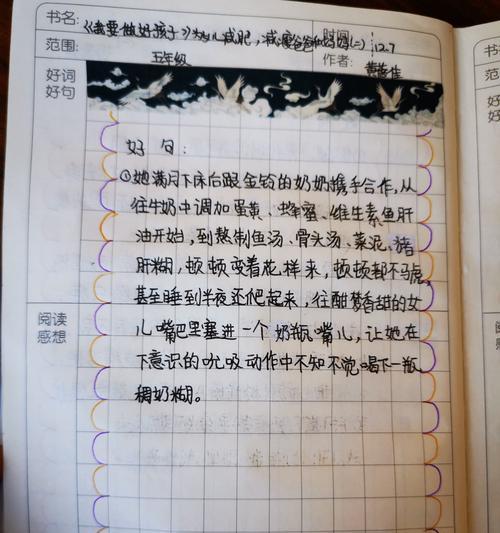 书名:《我要做好孩子》为女儿减肥,减瘦爸爸和妈妈(二) 时间: 12.7
范围: 五年级 作者: 黄蓓佳
好词
好句
好 句:
①她满月下床后跟金铃的奶奶携手合作,从
往牛奶中调加蛋黄、蜂蜜、维生素鱼肝
油开始,到熬制鱼汤、骨头汤、菜泥、猪
肝糊,顿顿变着花样来,顿顿都不马虎,
甚至睡到半夜还爬起来,往酣梦香甜的女
儿嘴巴里塞进一个奶瓶嘴儿,让她在
下意识的吮吸动作中不知不觉喝下一瓶
稠奶糊。
阅读
感想